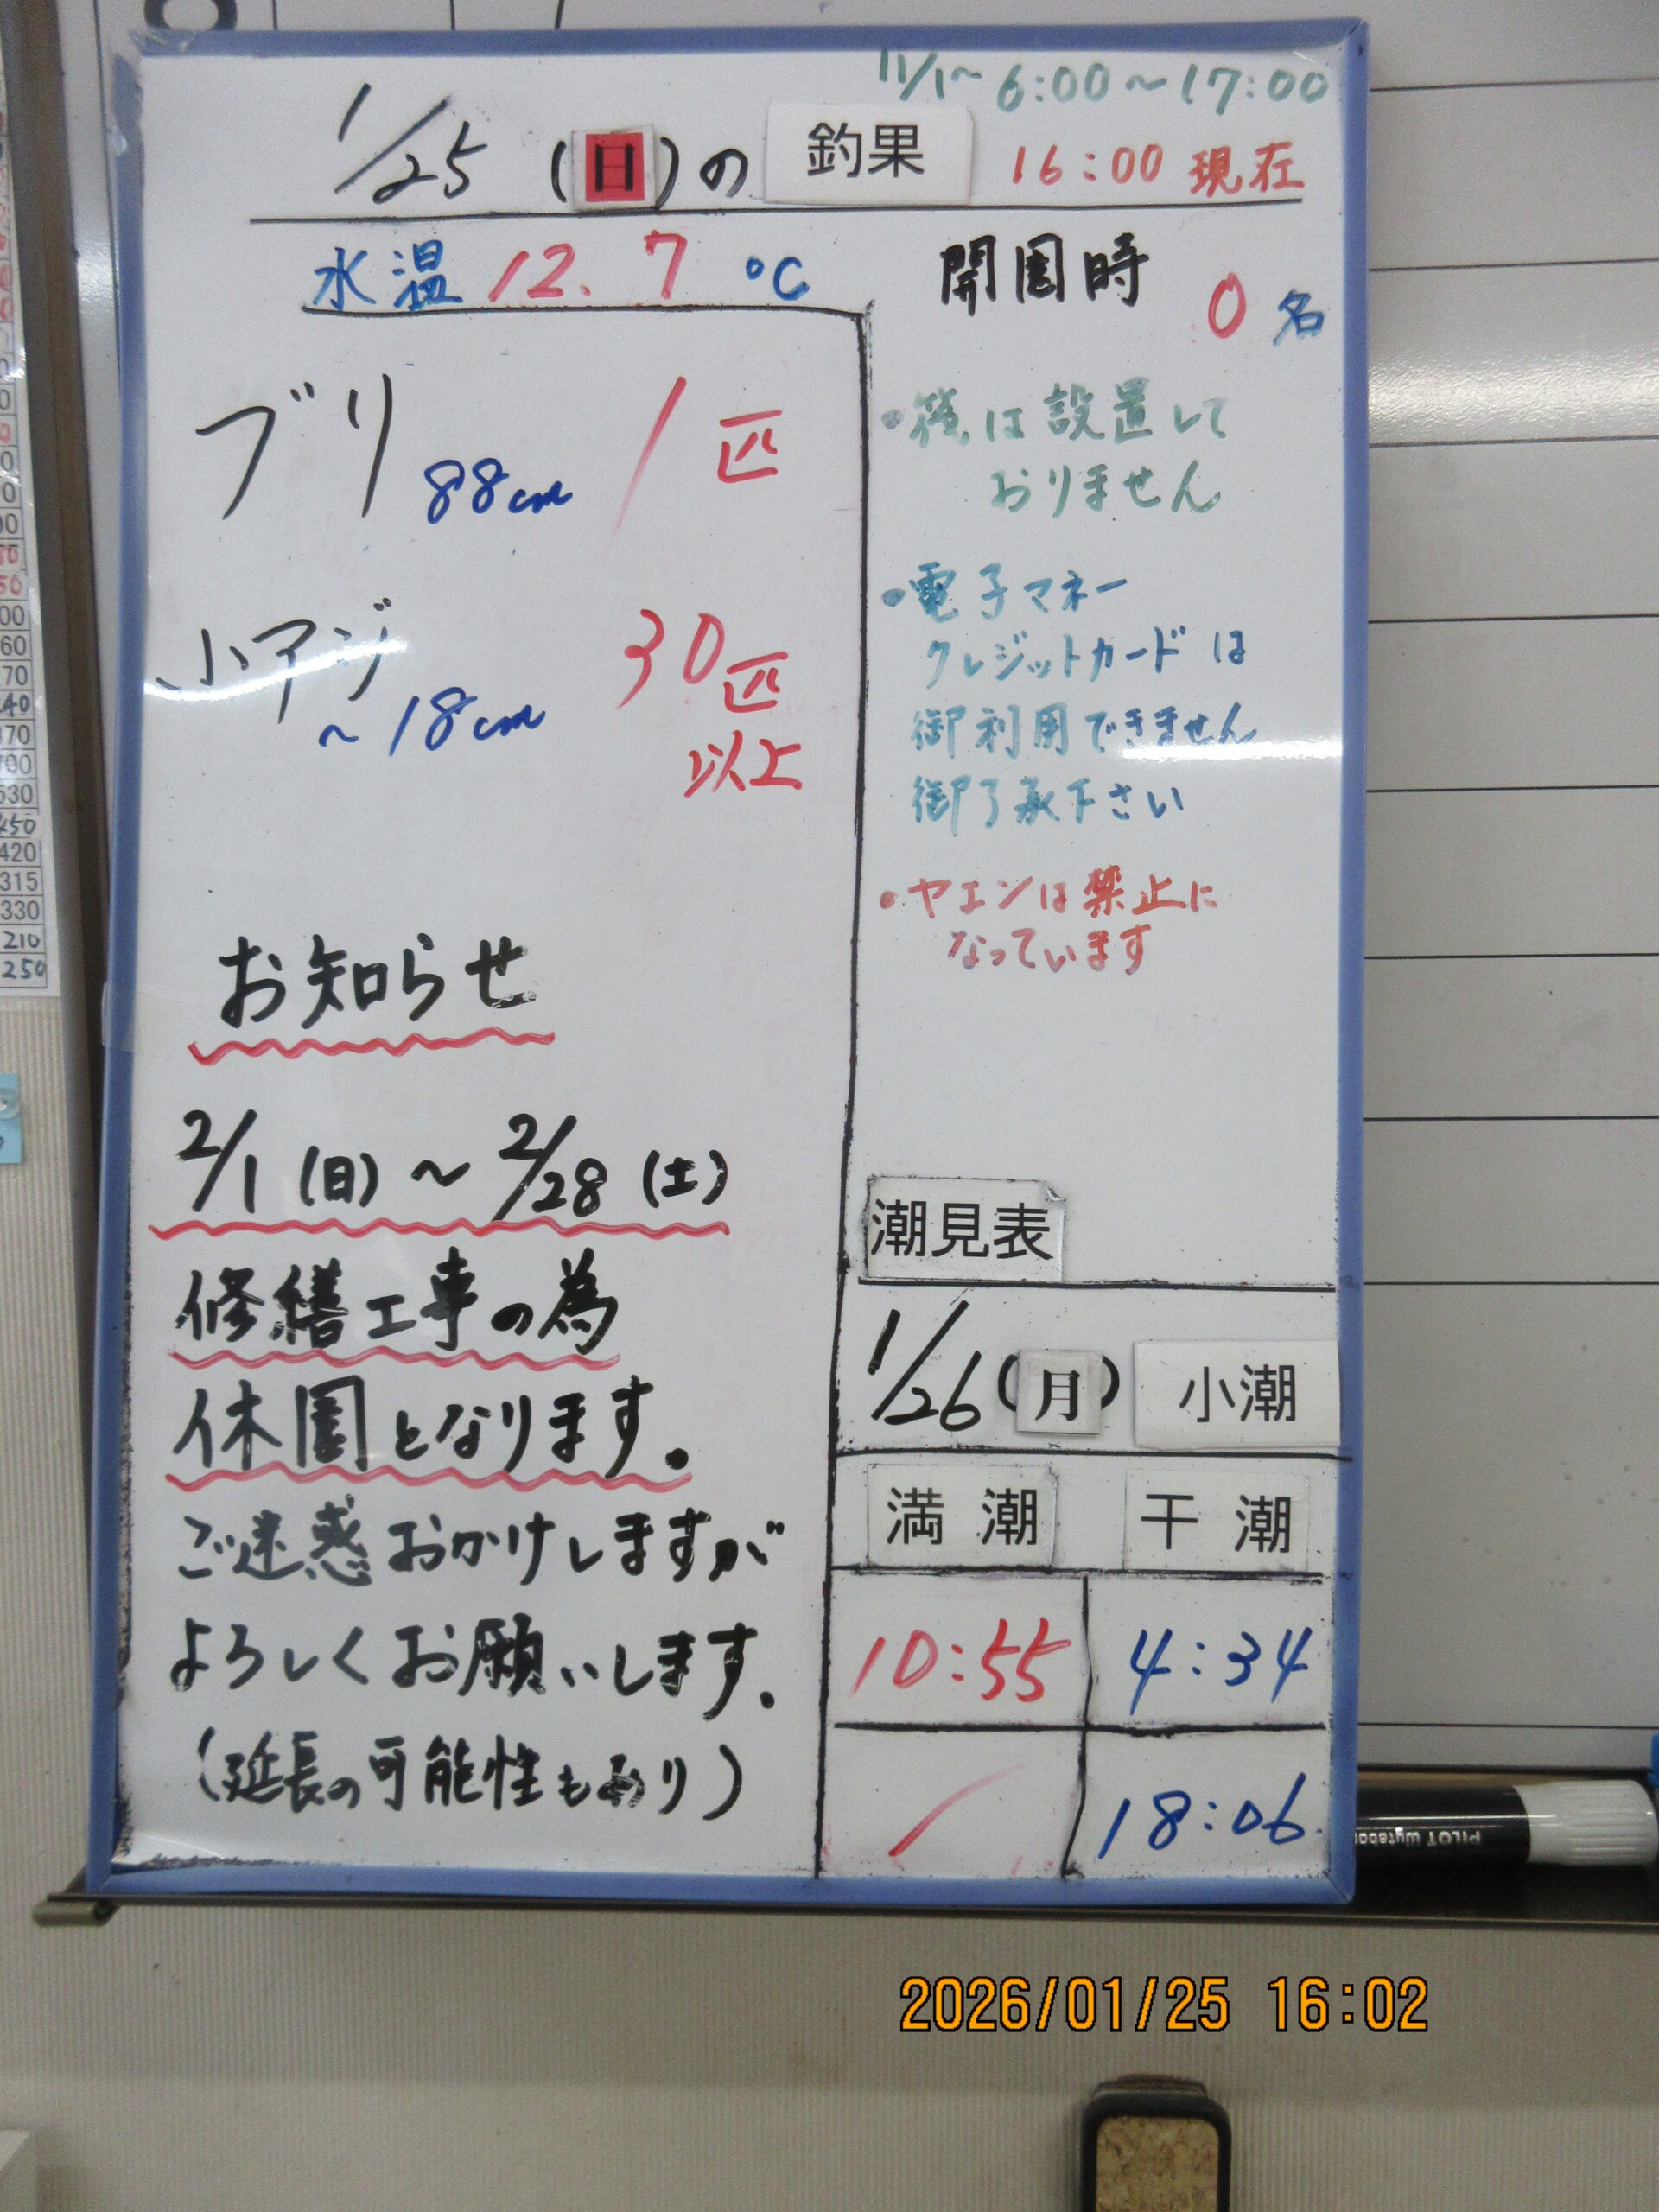 11/1～ 6:00～17:00
1/25 (日)の 釣果 16:00 現在
水温 12.7 ℃
開園時 0 名
ブリ 88cm 1匹
小アジ ～18cm 30匹
以上
お知らせ
2/1 (日) ～ 2/28 (土)
修繕工事の為
休園となります。
ご迷惑おかけしますが
よろしくお願いします。
(延長の可能性もあり)
・後は設置して
おりません
・電子マネー
クレジットカードは
御利用できません
御了承下さい
・ヤエンは禁止に
なっています
潮見表
1/26 (月) 小潮
満潮 干潮
10:55 4:34
/ 18:06
PILOT Wyteboard
2026/01/25 16:02
60
70
240
370
700
530
450
420
315
330
210
250